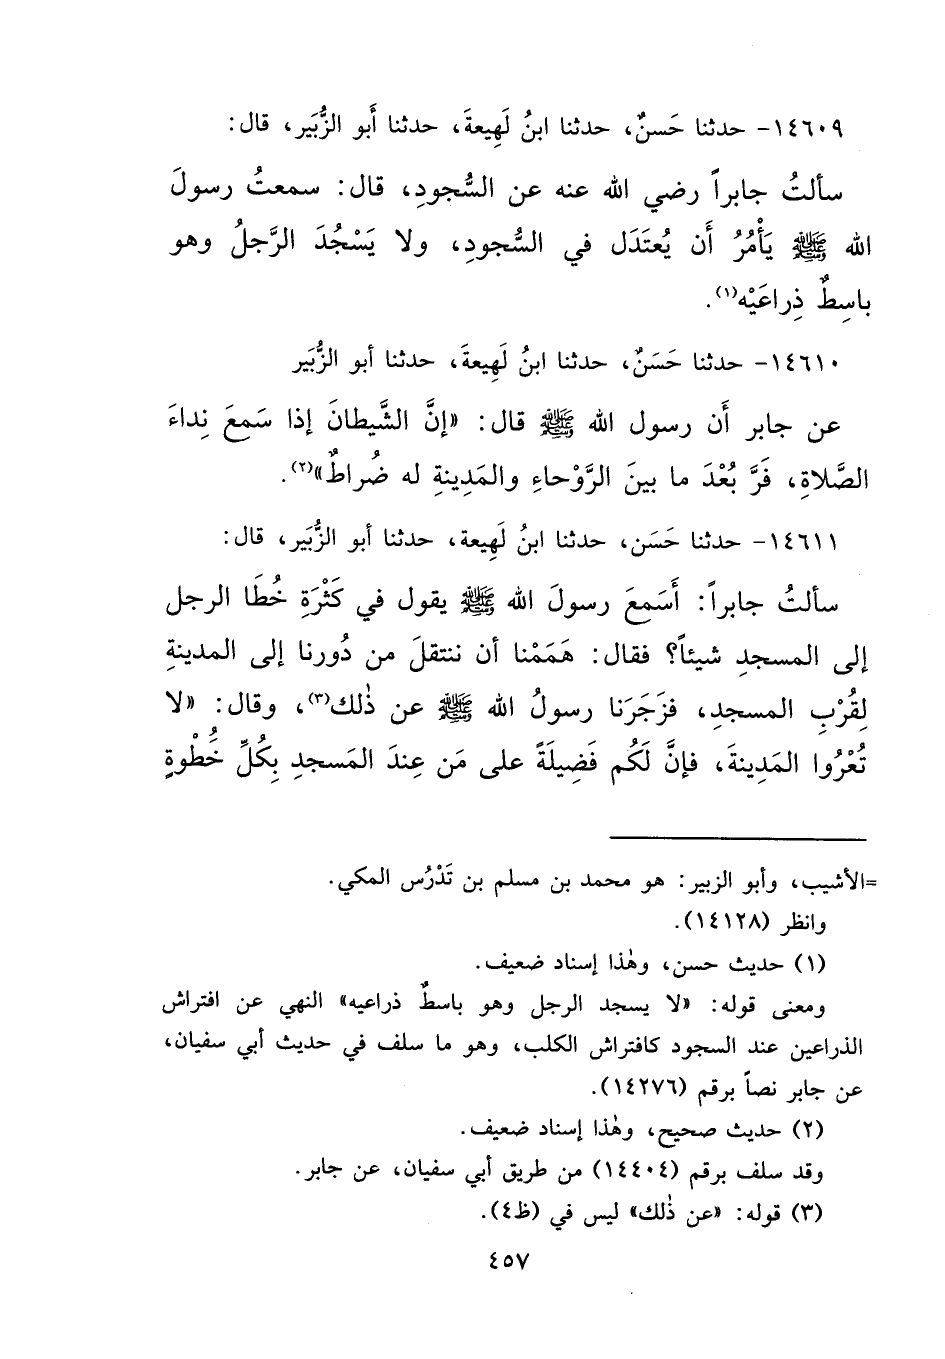 ١٤٦٠٩- حدثنا حَسنٌ، حدثنا ابنُ لَهِيعةَ، حدثنا أَبو الزُّبَير، قال:
سألتُ جابراً رضي الله عنه عن السُّجودِ، قال: سمعتُ رسولَ
الله ﷺ يَأْمُرُ أَن يُعتَدَل في السُّجودِ، ولا يَسْجُدَ الرَّجلُ وهو
باسِطٌ ذِراعَيْه(١).
١٤٦١٠- حدثنا حَسَنٌ، حدثنا ابنُ لَهِيعةَ، حدثنا أبو الزُّبَير
عن جابر أَن رسول الله ﷺ قال: «إنَّ الشَّيطانَ إذا سَمِعَ نِداءَ
الصَّلاةِ، فَرَّ بُعْدَ ما بينَ الرَّوْحاءِ والمَدِينةِ له ضُراطٌ»(٢).
١٤٦١١- حدثنا حَسَن، حدثنا ابنُ لَهِيعة، حدثنا أبو الزُّبَير، قال:
سألتُ جابراً: أَسَمِعَ رسولَ الله ﷺ يقول في كَثْرَةِ خُطَا الرجل
إلى المسجدِ شيئاً؟ فقال: هَمَمْنا أن ننتقلَ من دُورنا إلى المدينةِ
لِقُرْبِ المسجدِ، فزَجَرَنا رسولُ الله ﷺ عن ذٰلك(٣)، وقال: «لا
تُعْرُوا المَدِينةَ، فإنَّ لَكُم فَضِيلَةً على مَن عِندَ المَسجدِ بِكُلِّ خَُطْوةٍ
=الأشيب، وأبو الزبير: هو محمد بن مسلم بن تَدْرُس المكي.
وانظر (١٤١٢٨).
(١) حديث حسن، وهٰذا إسناد ضعيف.
ومعنى قوله: «لا يسجد الرجل وهو باسطٌ ذراعيه» النهي عن افتراش
الذراعين عند السجود كافتراش الكلب، وهو ما سلف في حديث أبي سفيان،
عن جابر نصاً برقم (١٤٢٧٦).
(٢) حديث صحيح، وهٰذا إسناد ضعيف.
وقد سلف برقم (١٤٤٠٤) من طريق أبي سفيان، عن جابر.
(٣) قوله: «عن ذٰلك» ليس في (ظ٤).
٤٥٧